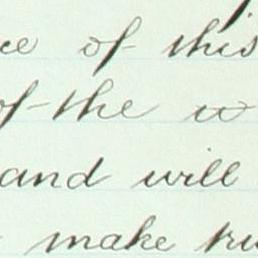 of this
of the w
and will
make